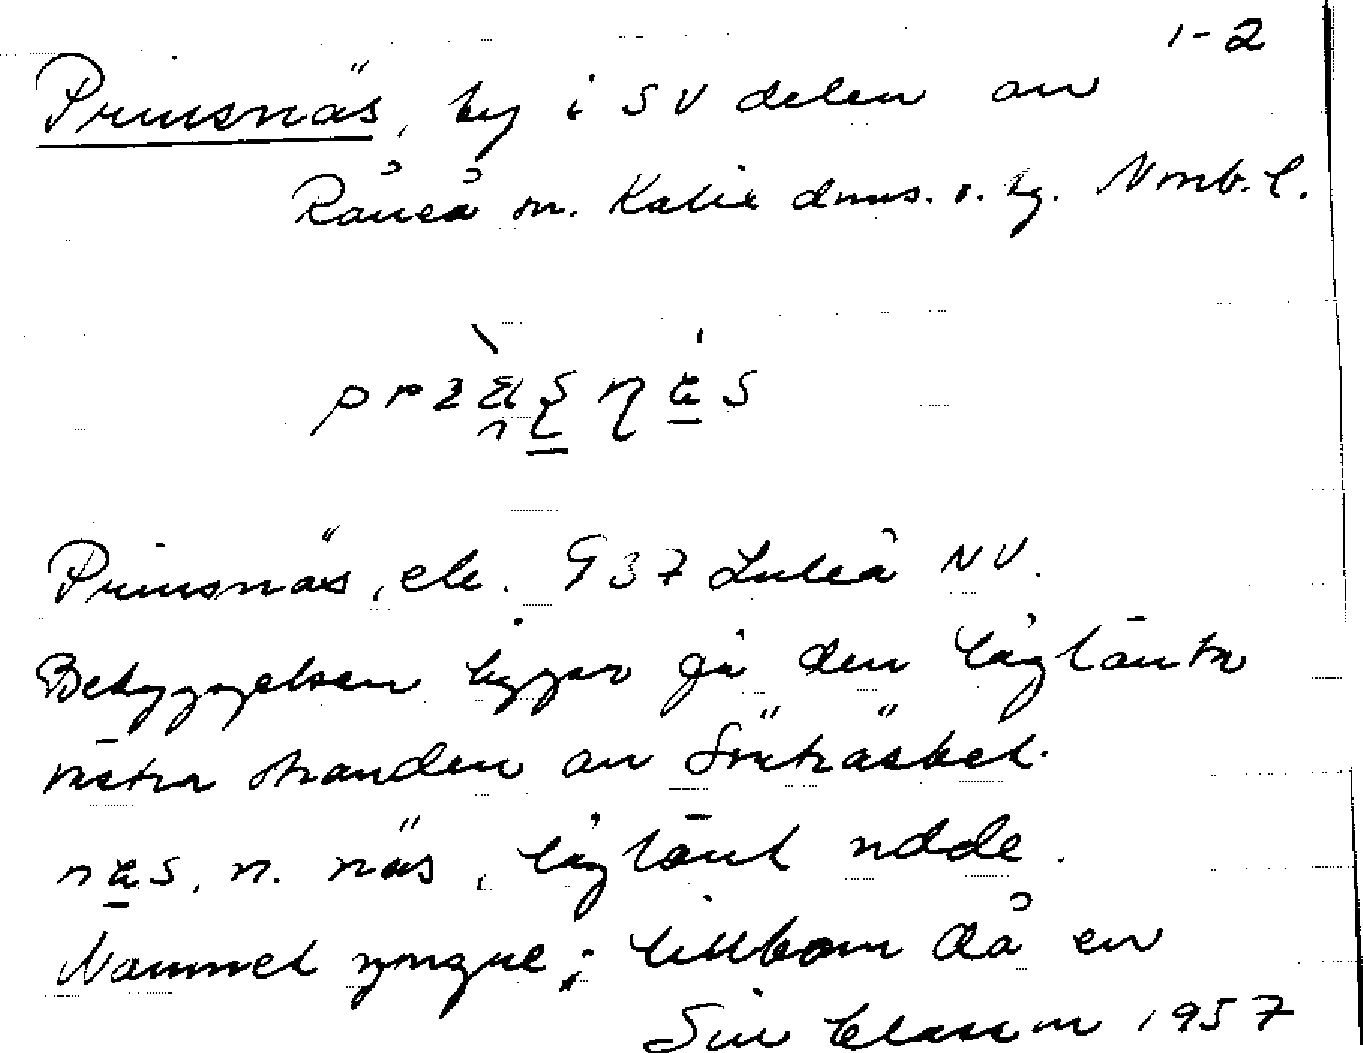 1-2
Prinsnäs, by i SV delen av
Råneå sn. Kalix dms. o. tg. Norrb. l.
Prinsnäs, ek. 937 Luleå NV.
Bebyggelsen ligger på den låglänta
västra stranden av Sörträsket.
näs, n. näs, låglänt udde.
Namnet yngre; tillkom då en
Siw Classon 1957